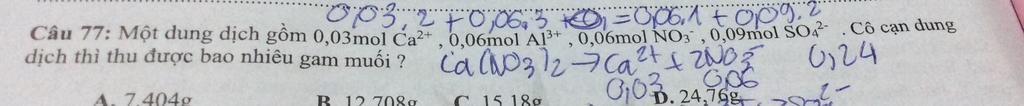 0,03.2 + 0,06.3 = 0,06.1 + 0,09.2
Câu 77: Một dung dịch gồm 0,03mol Ca²⁺ , 0,06mol Al³⁺ , 0,06mol NO₃⁻ , 0,09mol SO₄²⁻ . Cô cạn dung
dịch thì thu được bao nhiêu gam muối ? Ca(NO₃)₂ → Ca²⁺ + 2NO₃⁻ 0,24
0,03 0,06
A. 7,404g B. 12,708g C. 15,18g D. 24,76g